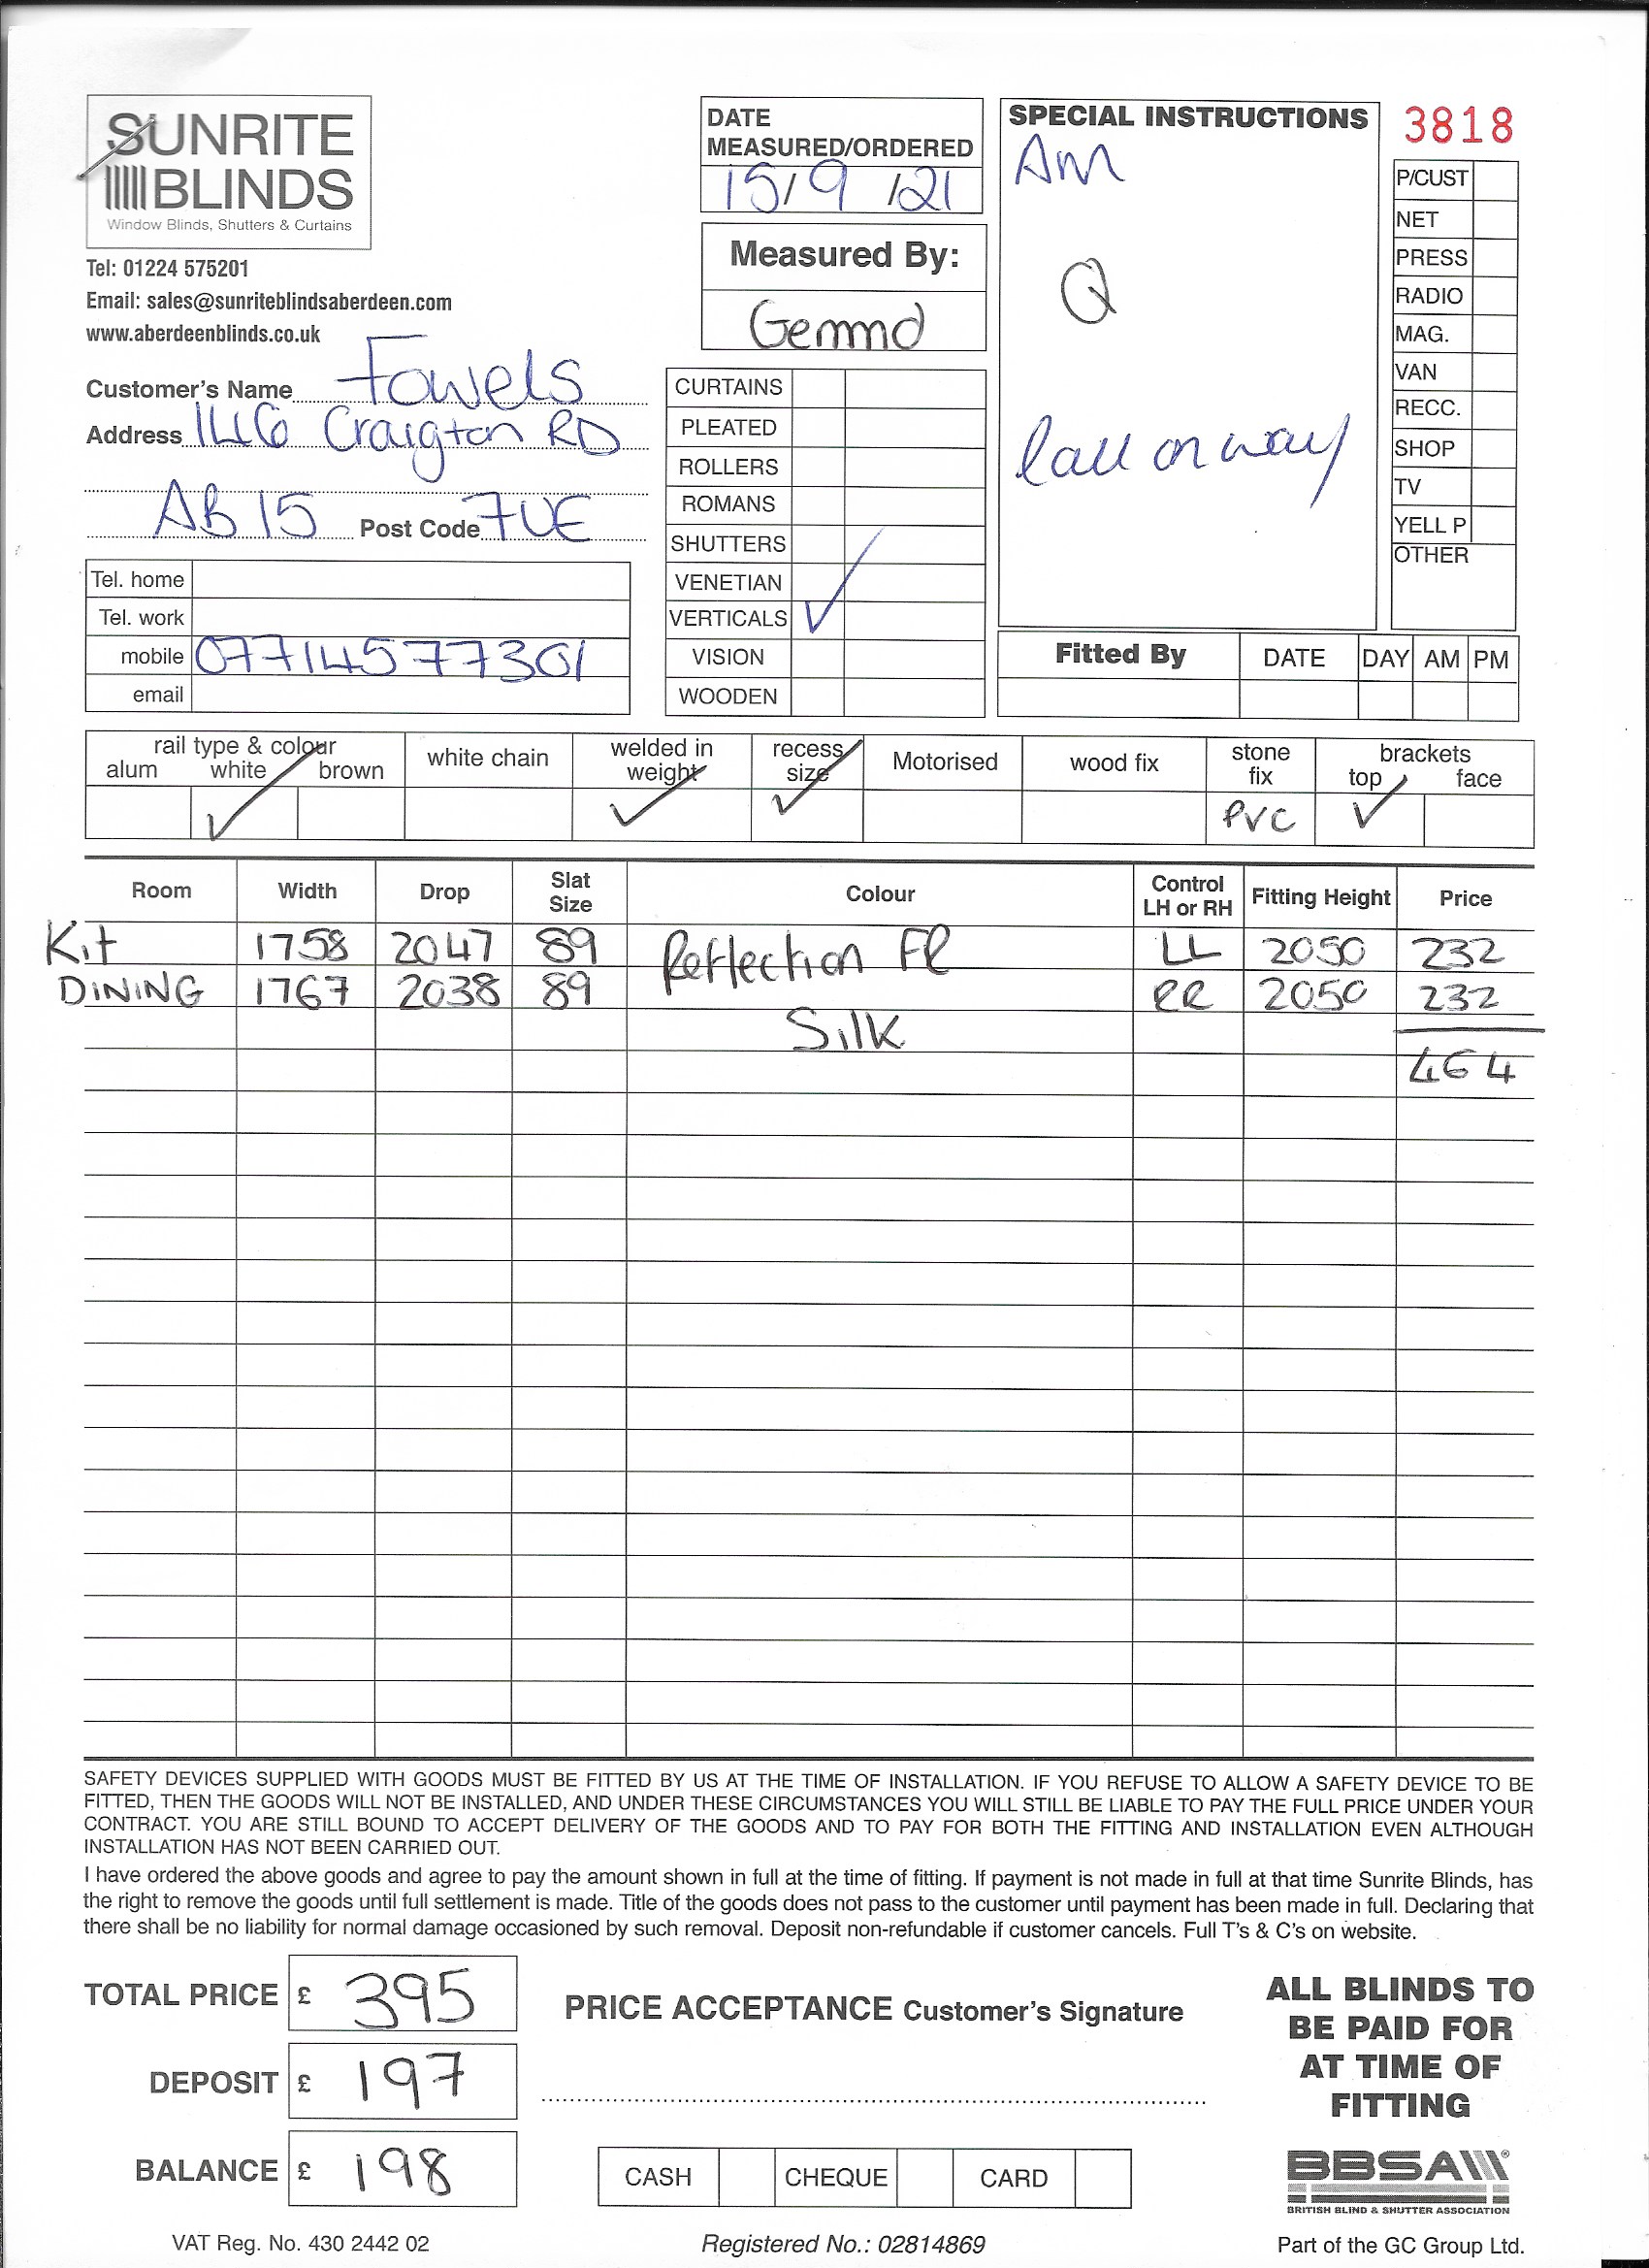 SUNRITE
BLINDS
Window Blinds, Shutters & Curtains
Tel: 01224 575201
Email: sales@sunriteblindsaberdeen.com
www.aberdeenblinds.co.uk
DATE
MEASURED/ORDERED
15/9/21
Measured By:
Gemma
SPECIAL INSTRUCTIONS
Am
Q
Call on way
3818
P/CUST
NET
PRESS
RADIO
MAG.
VAN
RECC.
SHOP
TV
YELL P
OTHER
Customer's Name Fowels
Address 146 Craigton RD
AB15 Post Code 7UE
Tel. home
Tel. work
mobile 07714577301
email
CURTAINS
PLEATED
ROLLERS
ROMANS
SHUTTERS
VENETIAN
VERTICALS ✓
VISION
WOODEN
Fitted By DATE DAY AM PM
rail type & colour
alum white brown
white chain
welded in
weight
recess
size
Motorised
wood fix
stone
fix
brackets
top face
✓ ✓ ✓ PVC ✓
Room Width Drop Slat Size Colour Control LH or RH Fitting Height Price
Kit 1758 2047 89 Reflection FR LL 2050 232
DINING 1767 2038 89 RR 2050 232
Silk
464
SAFETY DEVICES SUPPLIED WITH GOODS MUST BE FITTED BY US AT THE TIME OF INSTALLATION. IF YOU REFUSE TO ALLOW A SAFETY DEVICE TO BE
FITTED, THEN THE GOODS WILL NOT BE INSTALLED, AND UNDER THESE CIRCUMSTANCES YOU WILL STILL BE LIABLE TO PAY THE FULL PRICE UNDER YOUR
CONTRACT. YOU ARE STILL BOUND TO ACCEPT DELIVERY OF THE GOODS AND TO PAY FOR BOTH THE FITTING AND INSTALLATION EVEN ALTHOUGH
INSTALLATION HAS NOT BEEN CARRIED OUT.
I have ordered the above goods and agree to pay the amount shown in full at the time of fitting. If payment is not made in full at that time Sunrite Blinds, has
the right to remove the goods until full settlement is made. Title of the goods does not pass to the customer until payment has been made in full. Declaring that
there shall be no liability for normal damage occasioned by such removal. Deposit non-refundable if customer cancels. Full T's & C's on website.
TOTAL PRICE £ 395
DEPOSIT £ 197
BALANCE £ 198
PRICE ACCEPTANCE Customer's Signature
CASH CHEQUE CARD
ALL BLINDS TO
BE PAID FOR
AT TIME OF
FITTING
BBSA
BRITISH BLIND & SHUTTER ASSOCIATION
VAT Reg. No. 430 2442 02
Registered No.: 02814869
Part of the GC Group Ltd.